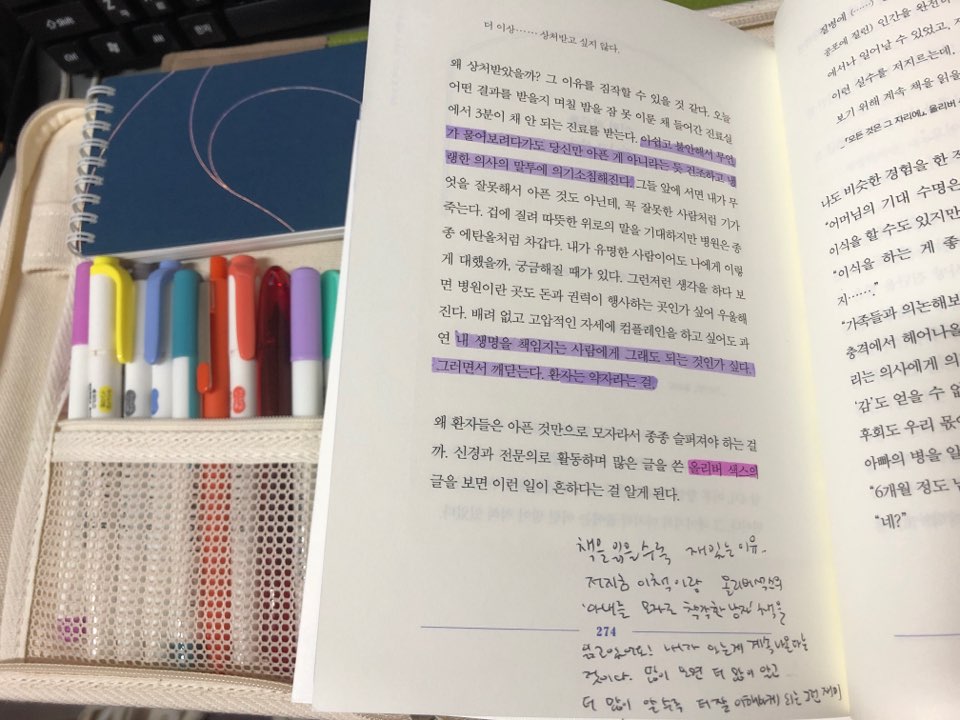 Shift
Ctrl
한자
더 이상…… 상처받고 싶지 않다.
왜 상처받았을까? 그 이유를 짐작할 수 있을 것 같다. 오늘
어떤 결과를 받을지 며칠 밤을 잠 못 이룬 채 들어간 진료실
에서 3분이 채 안 되는 진료를 받는다. 아쉽고 불안해서 무언
가 물어보려다가도 당신만 아픈 게 아니라는 듯 건조하고 냉
랭한 의사의 말투에 의기소침해진다. 그들 앞에 서면 내가 무
엇을 잘못해서 아픈 것도 아닌데, 꼭 잘못한 사람처럼 기가
죽는다. 겁에 질려 따뜻한 위로의 말을 기대하지만 병원은 종
종 에탄올처럼 차갑다. 내가 유명한 사람이어도 나에게 이렇
게 대했을까, 궁금해질 때가 있다. 그런저런 생각을 하다 보
면 병원이란 곳도 돈과 권력이 행사하는 곳인가 싶어 우울해
진다. 배려 없고 고압적인 자세에 컴플레인을 하고 싶어도 과
연 내 생명을 책임지는 사람에게 그래도 되는 것인가 싶다.
그러면서 깨닫는다. 환자는 약자라는 걸.
왜 환자들은 아픈 것만으로 모자라서 종종 슬퍼져야 하는 걸
까. 신경과 전문의로 활동하며 많은 글을 쓴 올리버 색스의
글을 보면 이런 일이 흔하다는 걸 알게 된다.
책을 읽을수록 재밌는 이유.
전지홍 이책이랑 올리버색스의
'아내를 모자로 착각한 남자' 책을
274
읽고있어요! 내가 아는게 계속 나온다는
것이다. 많이 보면 더 많이 알고
더 많이 알수록 더 잘 이해하게 되는 그런 재미
질병에 (……)
공포에 질린) 인간을 완전히
에서나 일어날 수 있었고,
이런 실수를 저지르는데,
보기 위해 계속 책을 읽을
『모든 것은 그 자리에』, 올리버
나도 비슷한 경험을 한 적
"어머님의 기대 수명은
이식을 할 수도 있지만
"이식을 하는 게 좋
지……."
"가족들과 의논해보
충격에서 헤어나올
리는 의사에게 의
'감'도 얻을 수 없
후회도 우리 몫이
아빠의 병을 알
"6개월 정도 남
"네?"